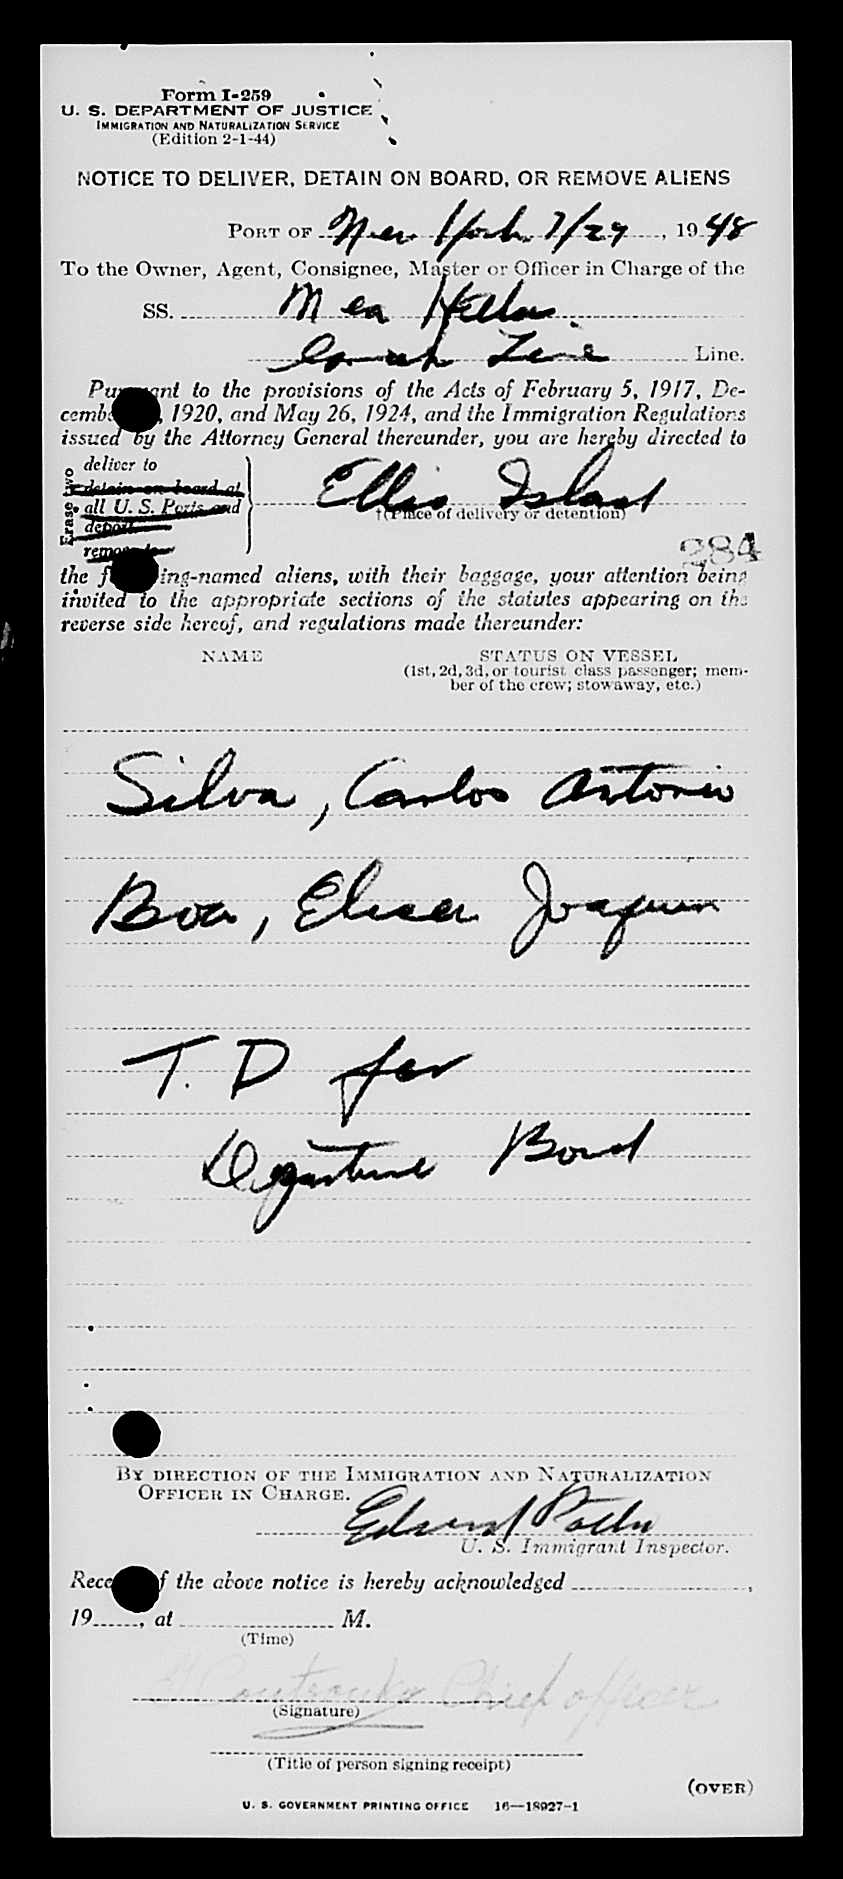 Form I-259
U. S. DEPARTMENT OF JUSTICE
IMMIGRATION AND NATURALIZATION SERVICE
(Edition 2-1-44)
NOTICE TO DELIVER, DETAIN ON BOARD, OR REMOVE ALIENS
PORT OF New York 7/27, 1948
To the Owner, Agent, Consignee, Master or Officer in Charge of the
SS. Mea Hellas
Line Line.
Pursuant to the provisions of the Acts of February 5, 1917, De-
cember , 1920, and May 26, 1924, and the Immigration Regulations
issued by the Attorney General thereunder, you are hereby directed to
Erase two
deliver to
detain on board at
all U. S. Ports and
deport
remove to
Ellis Island
†(Place of delivery or detention)
284
the following-named aliens, with their baggage, your attention being
invited to the appropriate sections of the statutes appearing on the
reverse side hereof, and regulations made thereunder:
NAME STATUS ON VESSEL
(1st, 2d, 3d, or tourist class passenger; mem-
ber of the crew; stowaway, etc.)
Silva, Carlos Antonio
Boa, Joaquin
T. D for
Departure Bond
BY DIRECTION OF THE IMMIGRATION AND NATURALIZATION
OFFICER IN CHARGE.
Edward
U. S. Immigrant Inspector.
Receipt of the above notice is hereby acknowledged ,
19 , at M.
(Time)
Chief officer
(Signature)
(Title of person signing receipt)
(OVER)
U. S. GOVERNMENT PRINTING OFFICE 16—18927-1